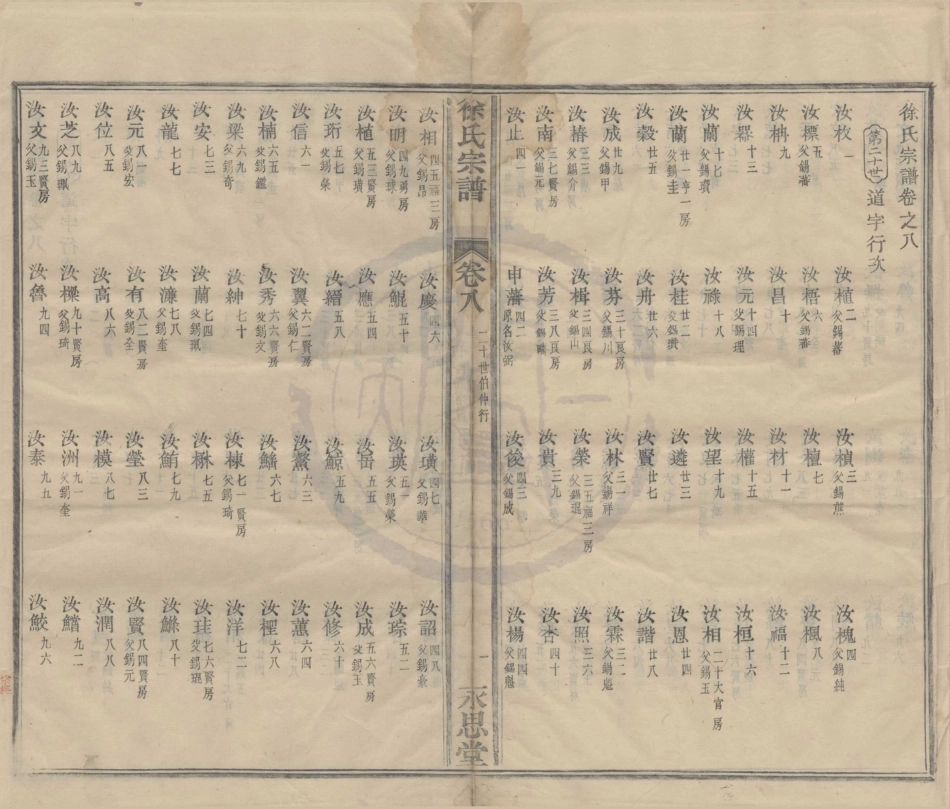 徐氏宗譜卷之八
第二十世 道字行次
汝枚 一
汝植 二 父錫蕃
汝楨 三 父錫熊
汝槐 四 父錫純
汝標 五 父錫蕃
汝梧 六 父錫蕃
汝檀 七
汝楓 八
汝枬 九
汝昌 十
汝材 十一
汝福 十二
汝槑 十三
汝元 十四 父錫理
汝權 十五
汝桓 十六
汝蕳 十七 父錫瓚
汝祿 十八
汝望 十九
汝相 二十大宫房 父錫玉
汝蘭 廿一亨一房 父錫圭
汝桂 廿二 父錫瓚
汝遴 廿三
汝恩 廿四
汝穀 廿五
汝舟 廿六
汝賢 廿七
汝諧 廿八
汝成 廿九 父錫甲
汝芬 三十良房 父錫川
汝林 三一 父錫祥
汝霖 三二 父錫魁
汝椿 三三 父錫介
汝楫 三四良房 父錫山
汝榮 三五福三房 父錫琨
汝照 三六
汝南 三七賢房 父錫元
汝芳 三八良房
汝貴 三九
汝杏 四十
汝止 四一
申藩 四二 原名汝弼
汝後 四三 父錫成
汝楊 四四 父錫魁
徐氏宗譜 卷八 二十世伯仲行 一 永思堂
汝相 四五福三房 父錫昂
汝慶 四六
汝璜 四七 父錫華
汝詔 四八 父錫彖
汝明 四九勇房 父錫球
汝鯤 五十
汝瑛 五一 父錫榮
汝琮 五二
汝植 五三賢房 父錫璜
汝應 五四
汝畨 五五
汝成 五六賢房 父錫玉
汝珩 五七 父錫榮
汝縉 五八
汝鯨 五九
汝修 六十
汝信 六一
汝翼 六二賢房 父錫仁
汝鰲 六三
汝薰 六四
汝楠 六五 父錫鑑
汝秀 六六賢房 父錫文
汝鱗 六七
汝禋 六八
汝梁 六九 父錫奇
汝紳 七十
汝棟 七一賢房 父錫琦
汝洋 七二
汝安 七三
汝蘭 七四 父錫珮
汝楙 七五
汝珪 七六賢房 父錫琨
汝龍 七七
汝濂 七八 父錫奎
汝鮪 七九
汝鰱 八十
汝元 八一 父錫宏
汝有 八二賢房 父錫全
汝瑩 八三
汝賢 八四賢房 父錫元
汝位 八五
汝高 八六
汝模 八七
汝潤 八八
汝芝 八九 父錫珮
汝樑 九十賢房 父錫琦
汝洲 九一 父錫奎
汝鱛 九二
汝文 九三賢房 父錫玉
汝魯 九四
汝泰 九五
汝鮫 九六